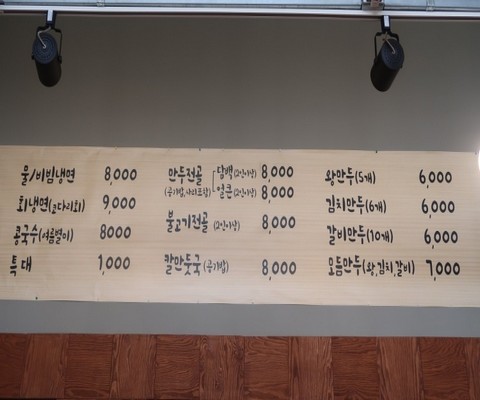 물/비빔냉면 8,000
회냉면(코다리회) 9,000
콩국수(여름별미) 8000
특대 1,000
만두전골 담백(2인이상) 8,000
(공기밥,사리포함) 얼큰(2인이상) 8,000
불고기전골 (2인이상) 8,000
칼만둣국 (공기밥) 8,000
왕만두(5개) 6,000
김치만두(6개) 6,000
갈비만두(10개) 6,000
모듬만두(왕,김치,갈비) 7,000